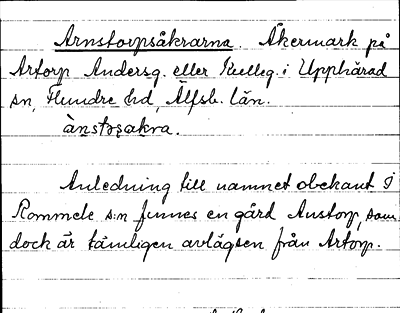 Arnstorpsåkrarna. Åkermark på
Artorp Andersg. eller Kulleg. i Upphärad
sn, Flundre hd, Älfsb. län.
ànstɔʂakra.
Anledning till namnet obekant I
Rommele s:n finnes en gård Anstorp, som
dock är tämligen avlägsen från Artorp.